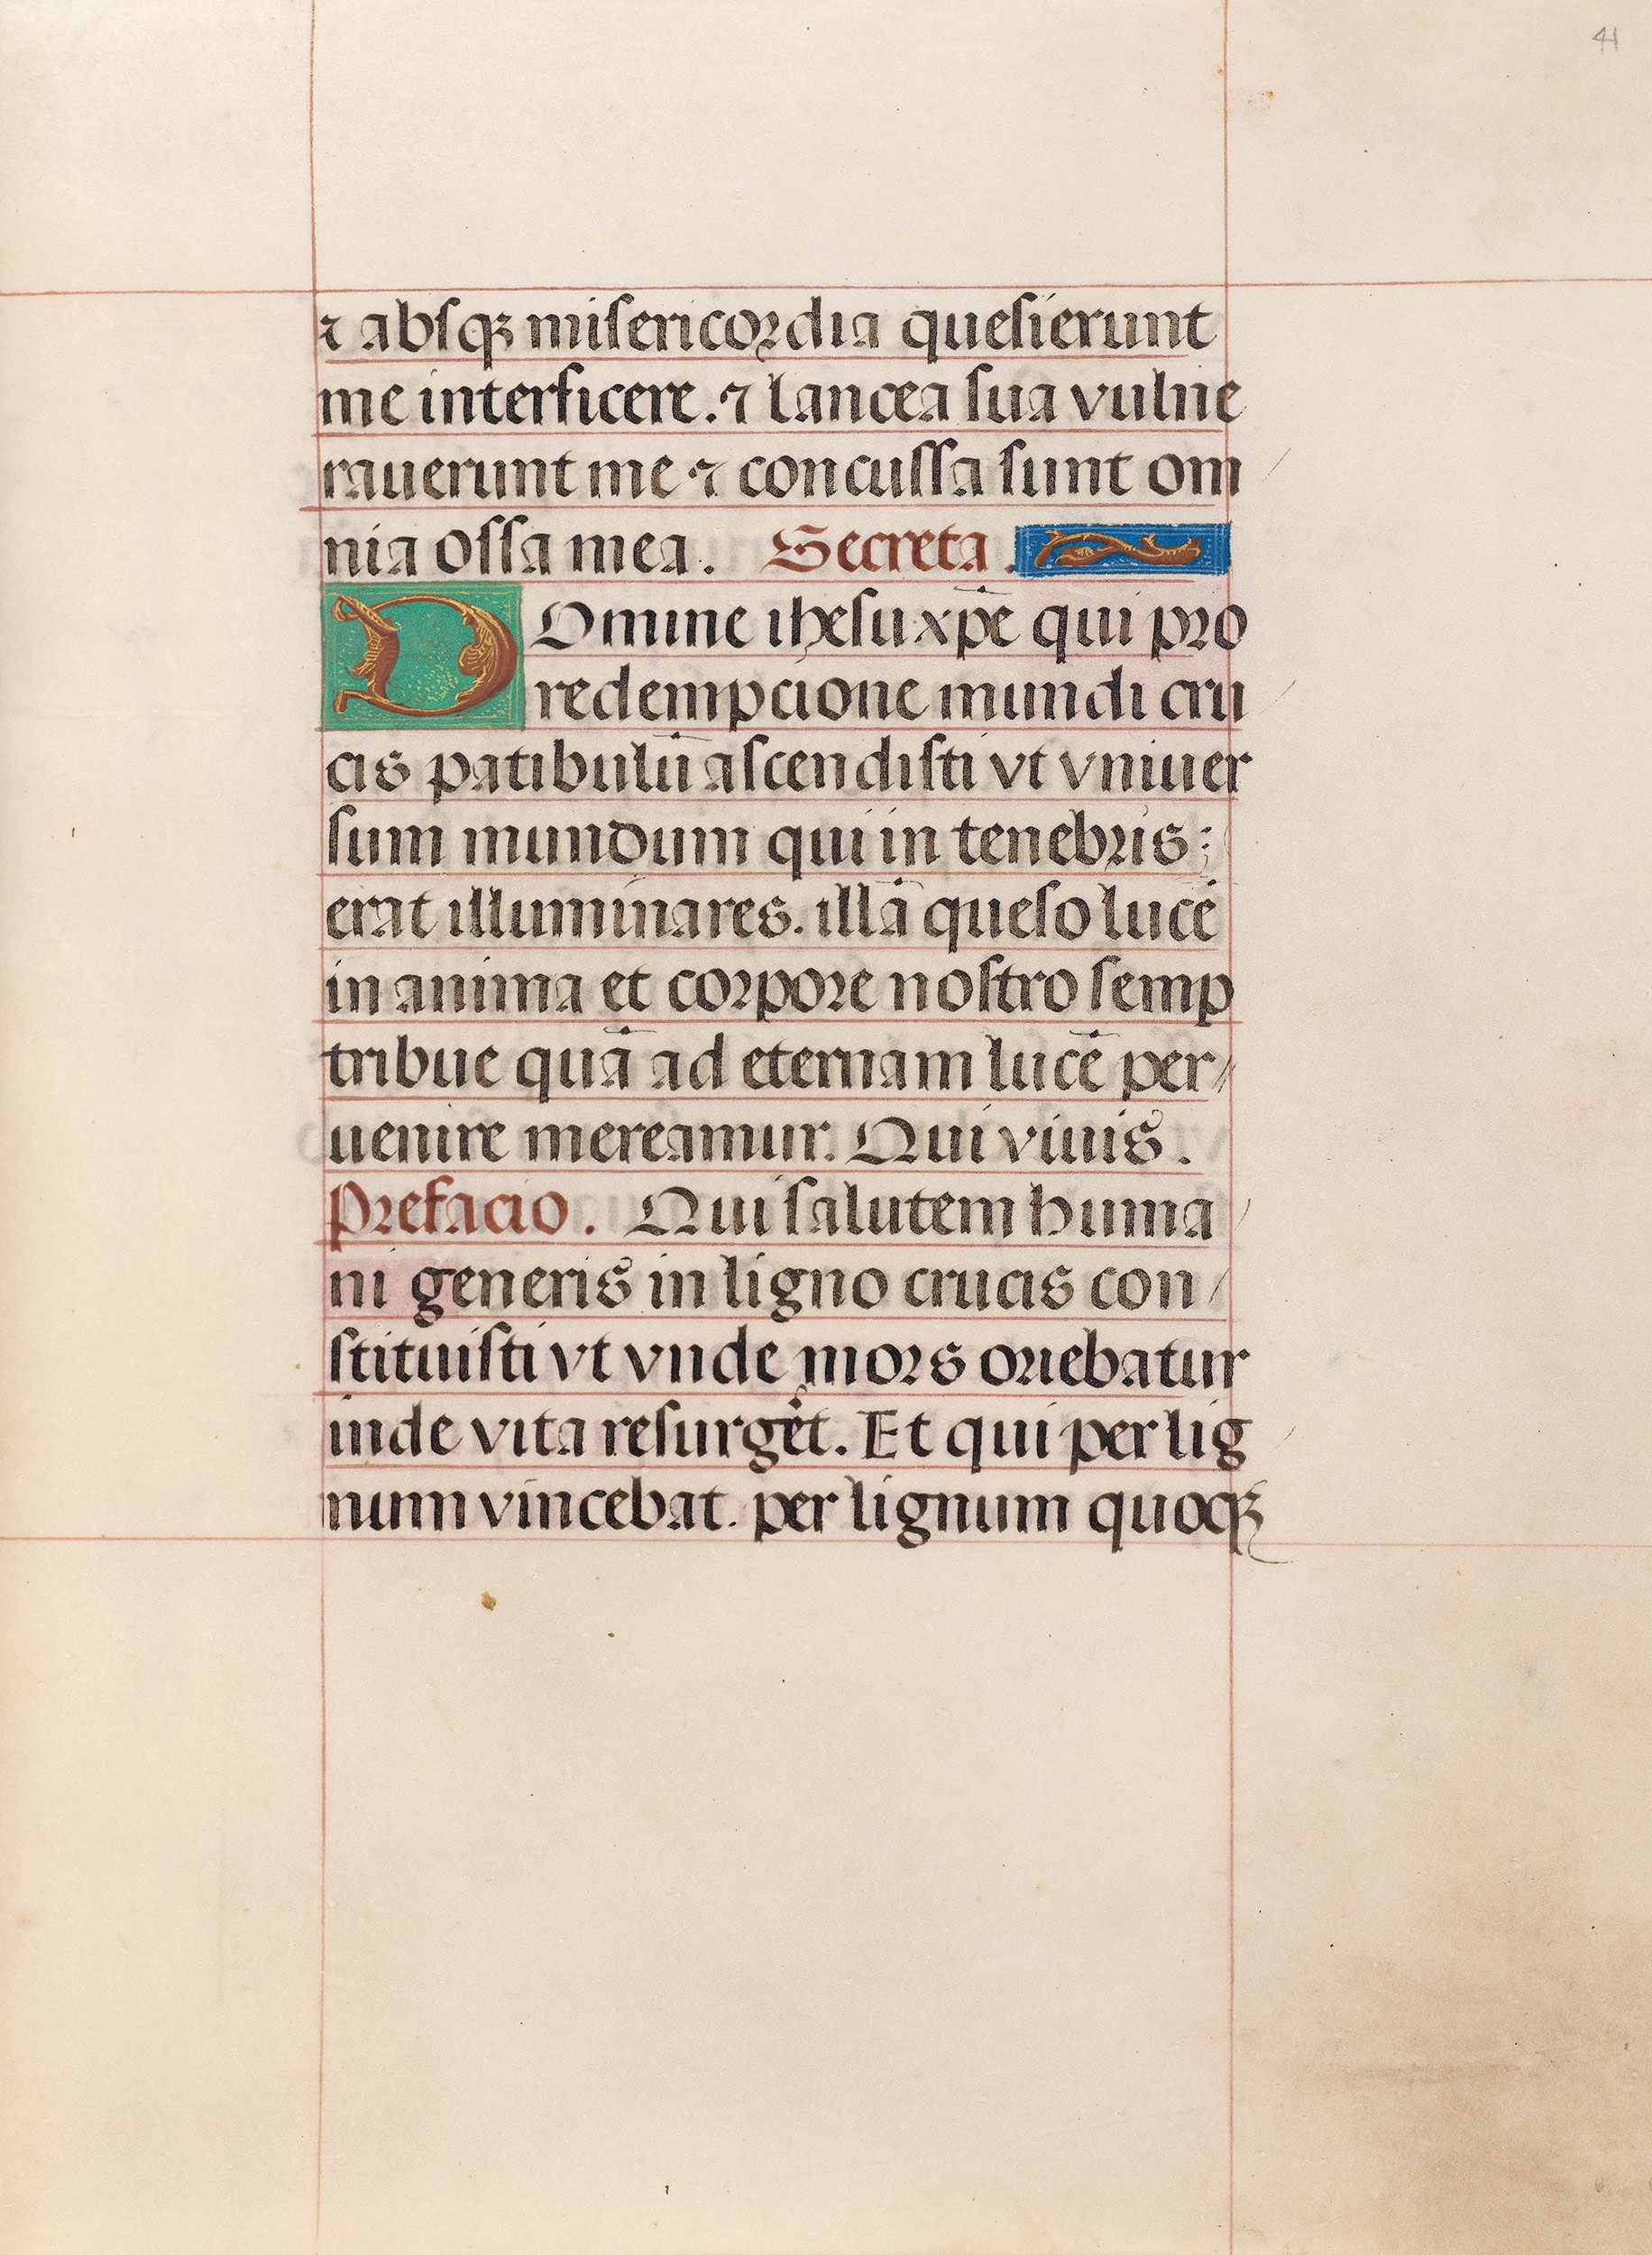 41
⁊ absqꝫ misericordia quesierunt
me interficere. ⁊ lancea sua vulne
rauerunt me ⁊ concussa sunt om
nia ossa mea. Secreta.
Domine ihesu xp̄e qui pro
redempcione mundi cru
cis patibulū ascendisti vt vniuer
sum mundum qui in tenebris;
erat illuminares. illā queso lucē
in anima et corpore nostro semp
tribue quā ad eternam lucē per
uenire mereamur. Qui viuis.
Prefacio. Qui salutem huma
ni generis in ligno crucis con
stituisti vt vnde mors oriebatur
inde vita resurgēt. Et qui per lig
num vincebat. per lignum quoqꝫ